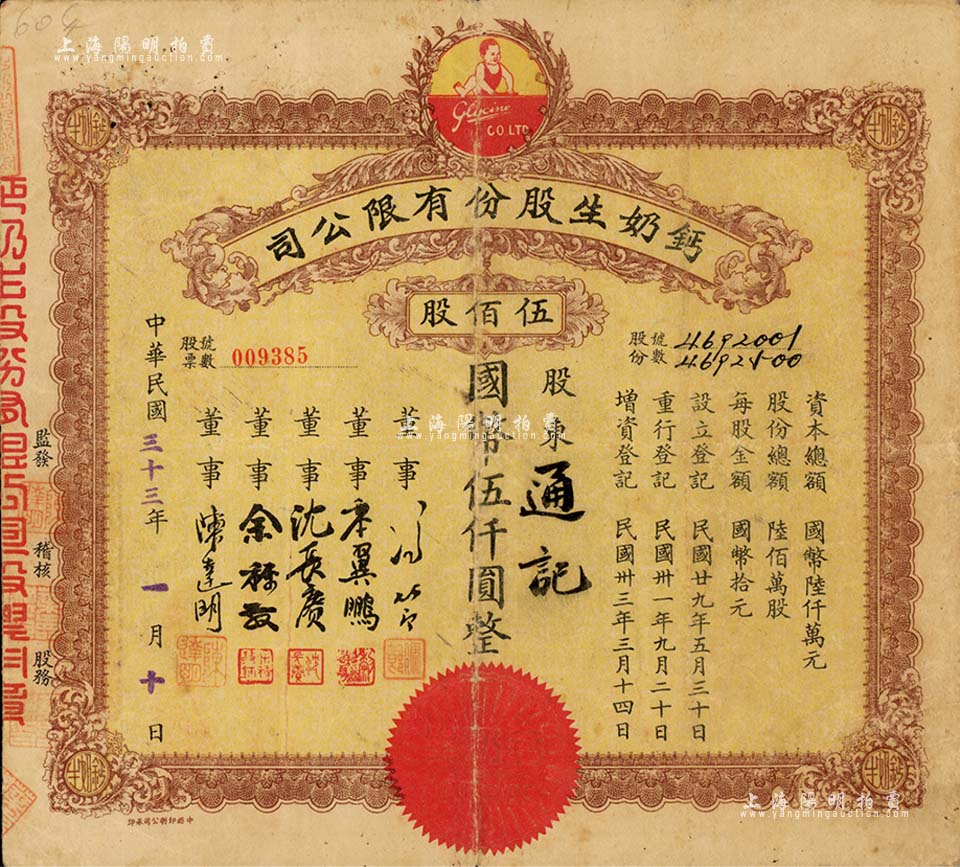 60
上海陽明拍賣
www.yangmingauction.com
Glycine
CO. LTD.
鈣奶生
鈣奶生
鈣奶生股份有限公司
伍佰股
股份號數 4692001
4692500
資本總額 國幣陸仟萬元
股份總額 陸佰萬股
每股金額 國幣拾元
設立登記 民國廿九年五月三十日
重行登記 民國卅一年九月二十日
增資登記 民國卅三年三月十四日
股東 通記
國幣伍仟圓整
上海陽明拍賣
www.yangmingauction.com
董事
董事 翼鵬
董事 沈長賡
董事 余
董事 陳達明
股票號數 009385
中華民國三十三年一月十日
監發 稽核 股務
鈣奶生
鈣奶生
上海陽明拍賣
www.yangmingauction.com